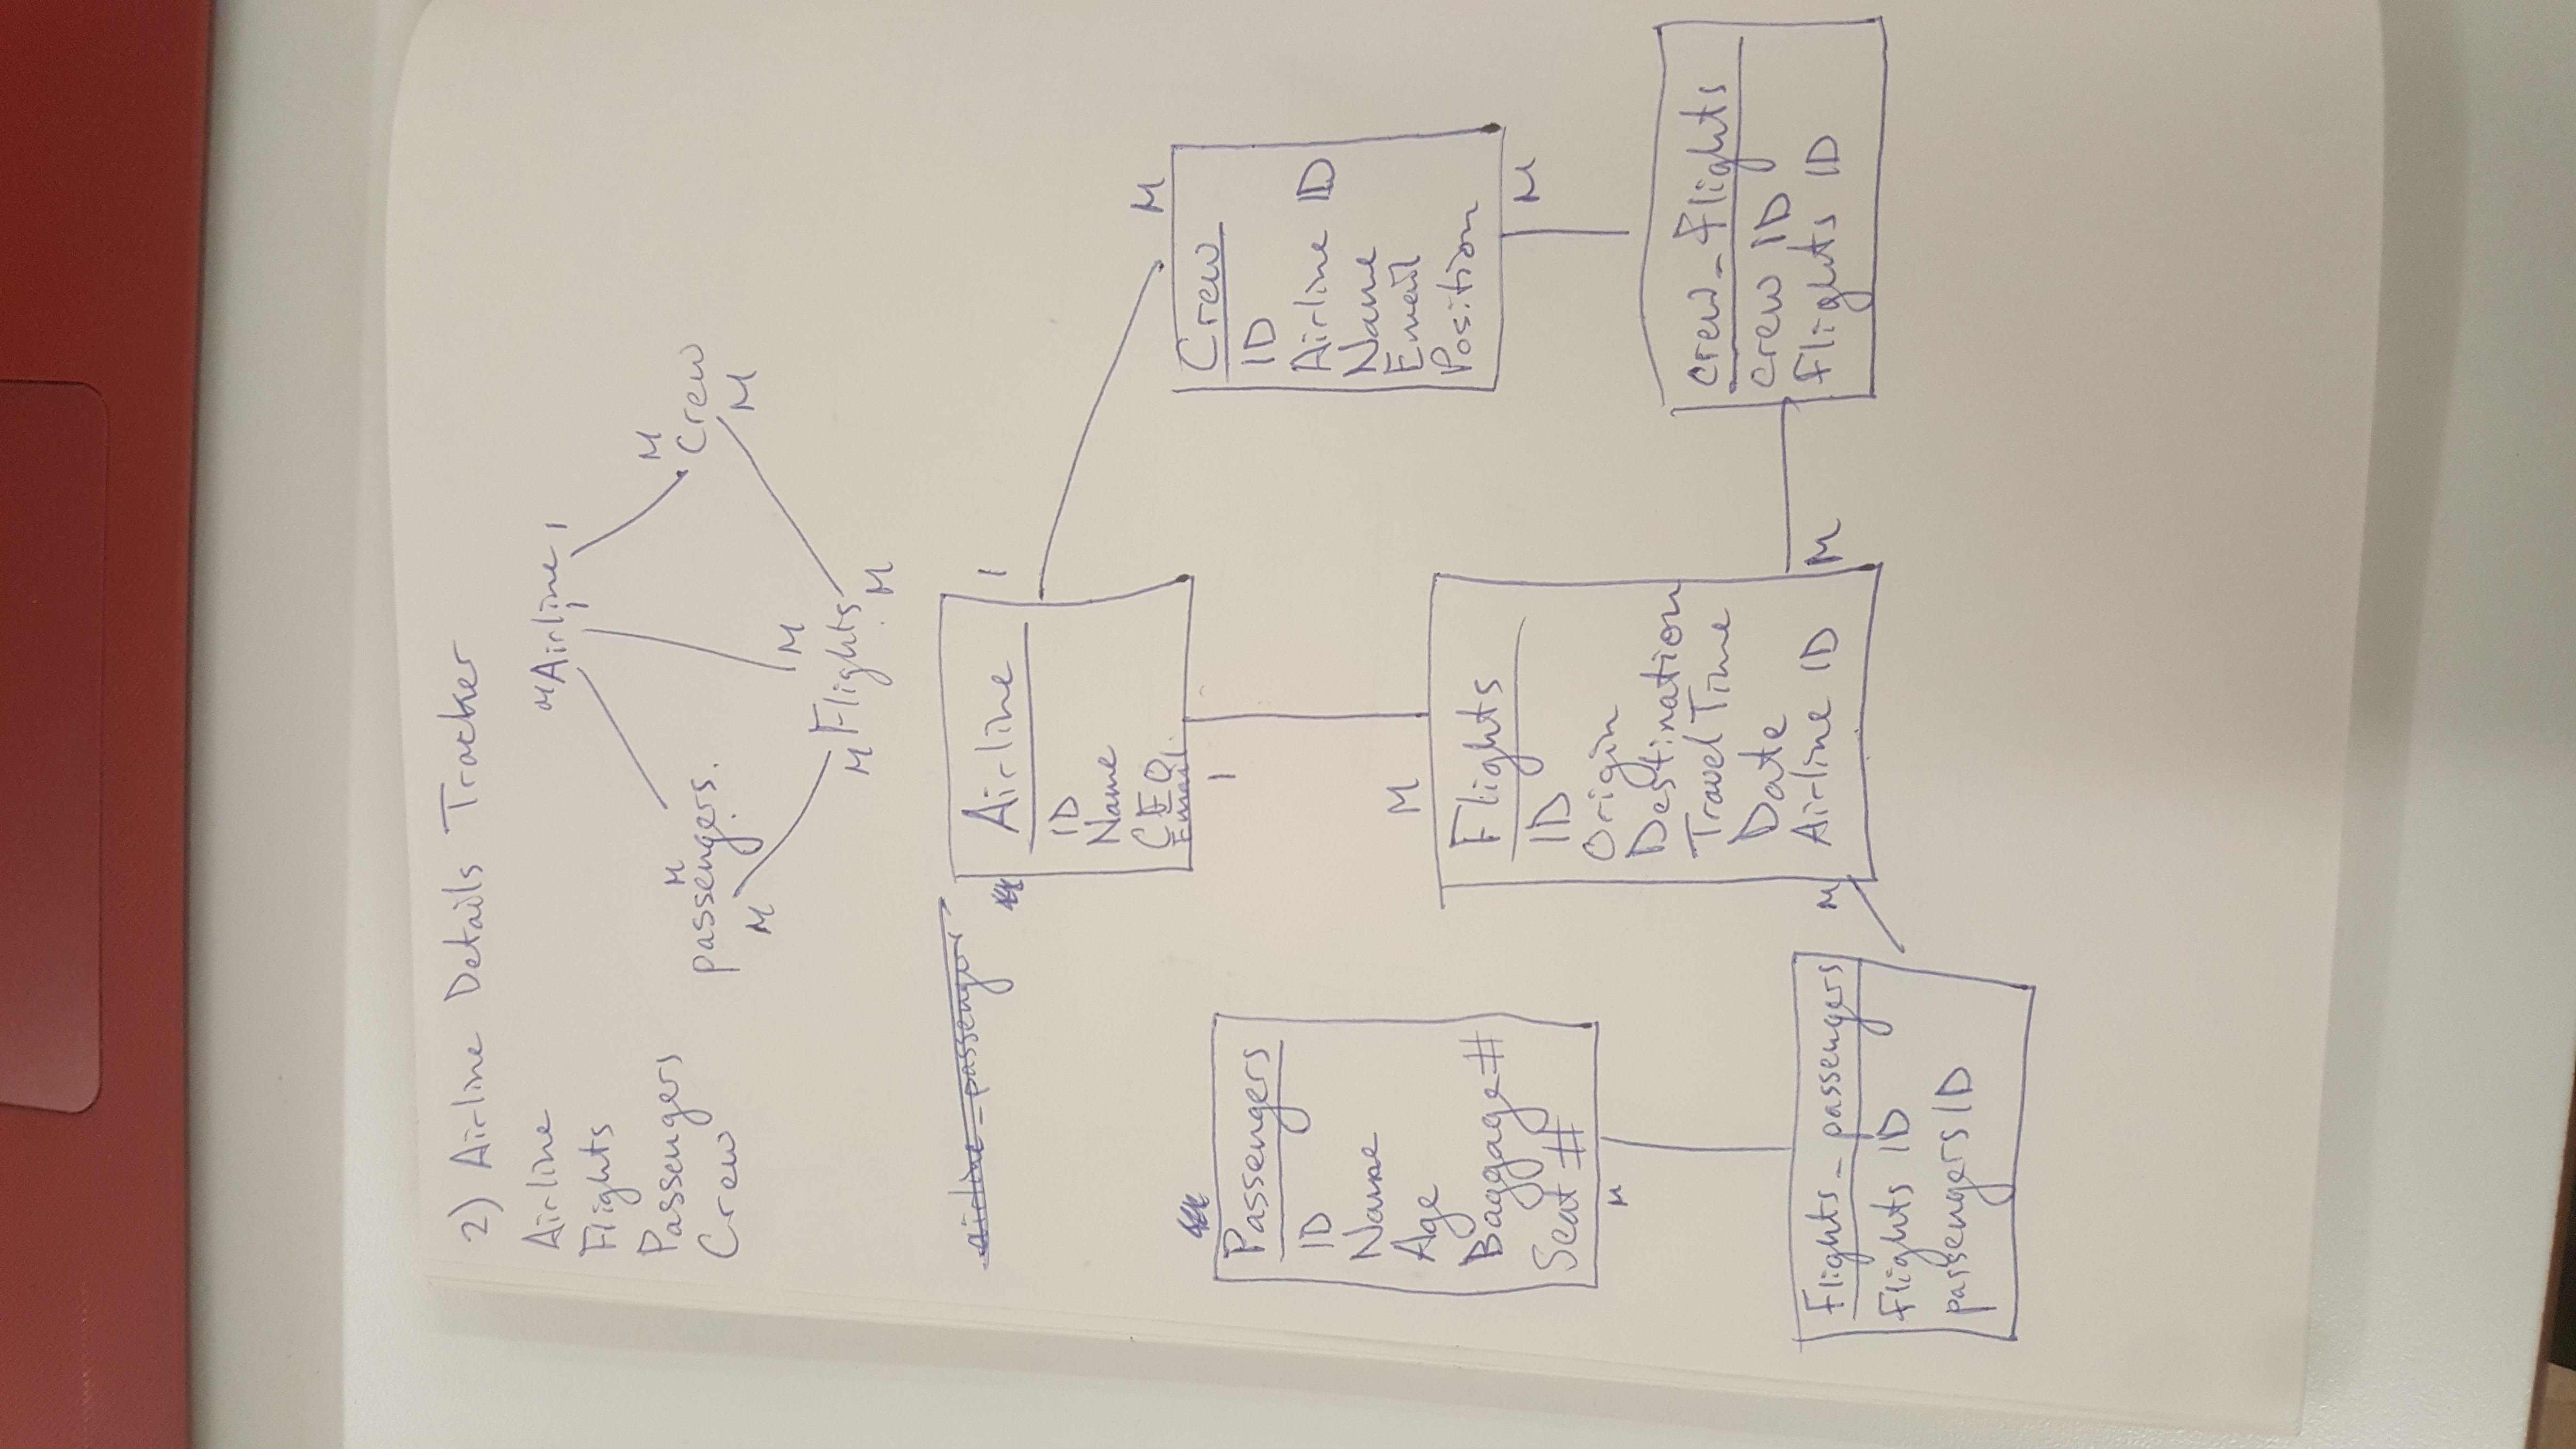 2) Airline Details Tracker
Airline
Flights
Passengers
Crew
M Airline 1
1
M
passengers.
M
M
Crew
M
M
M Flights
M
airline_passenger
Airline
1
ID
Name
CEO
Email
1
M
Passengers
ID
Name
Age
Baggage #
Seat #
M
M
Crew
ID
Airline ID
Name
Email
Position
M
Flights
ID
Origin
Destination
Travel Time
Date
Airline ID
M
M
crew_flights
crew ID
flights ID
Flights_passengers
flights ID
passengers ID